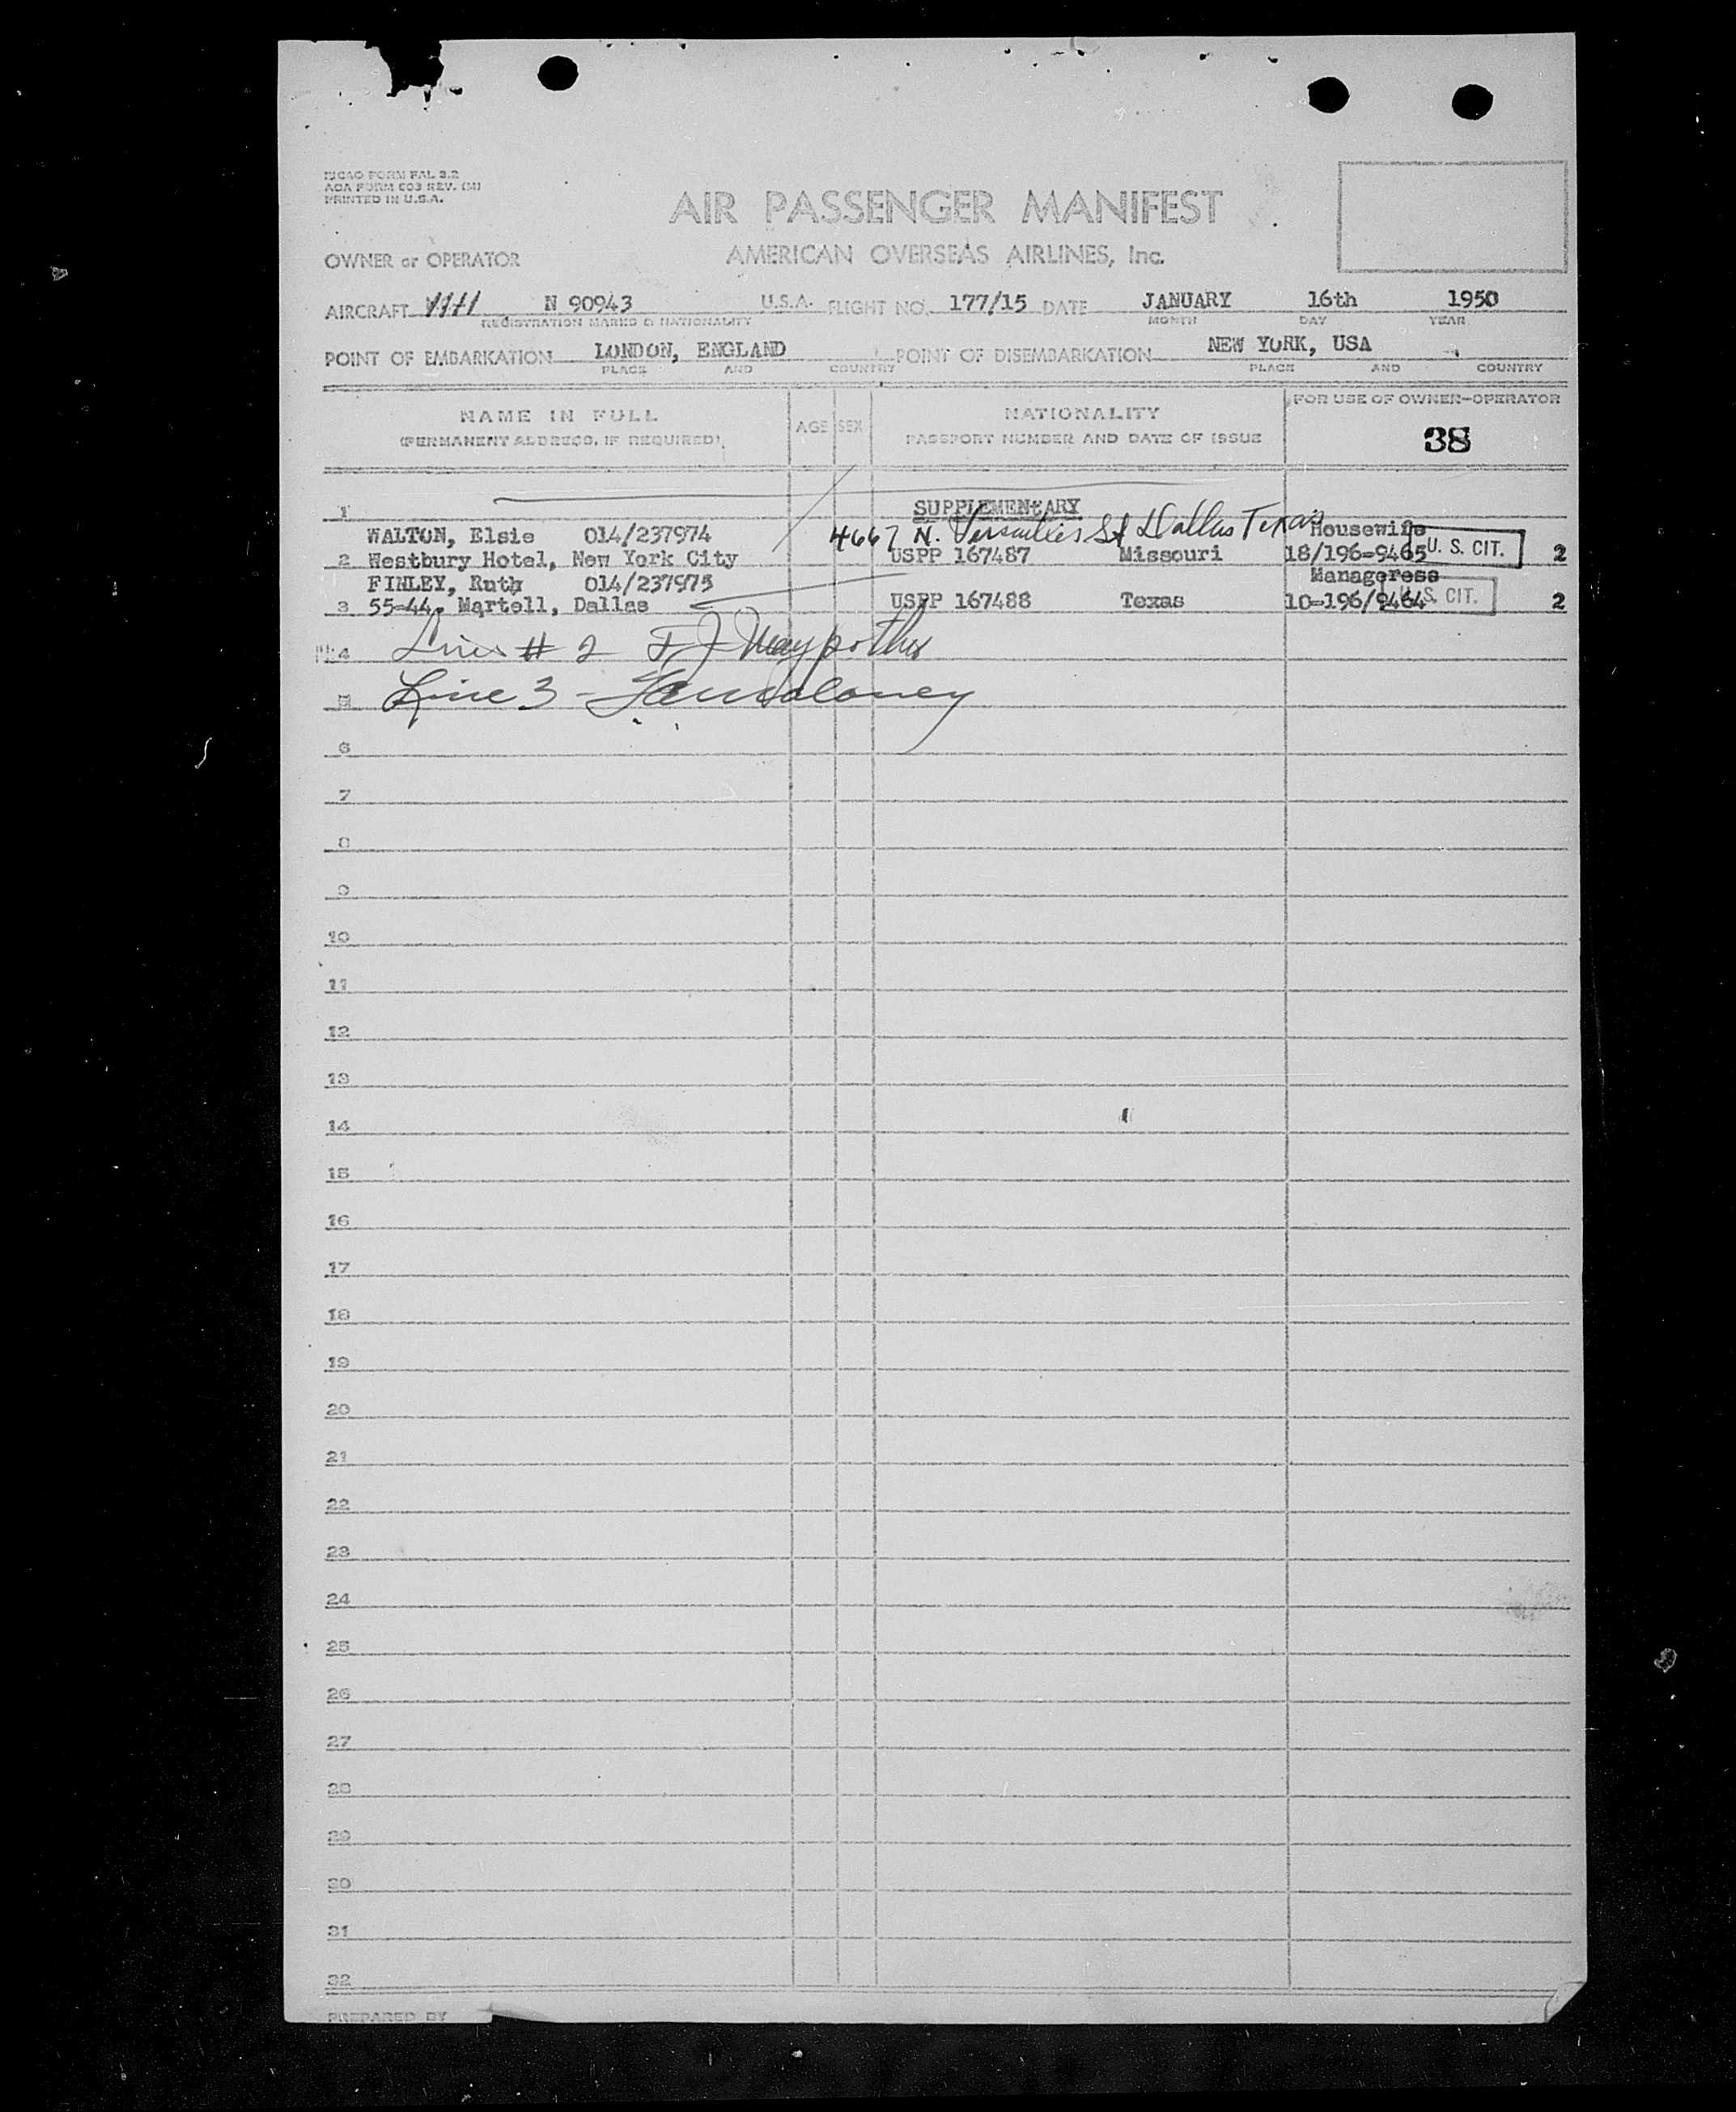 ICAO FORM FAL 3.2
AOA FORM 603 REV. (M)
PRINTED IN U.S.A.
AIR PASSENGER MANIFEST
OWNER or OPERATOR
AMERICAN OVERSEAS AIRLINES, Inc.
AIRCRAFT N 90943 U.S.A. FLIGHT NO. 177/15 DATE JANUARY 16th 1950
REGISTRATION MARKS & NATIONALITY MONTH DAY YEAR
POINT OF EMBARKATION LONDON, ENGLAND POINT OF DISEMBARKATION NEW YORK, USA
PLACE AND COUNTRY PLACE AND COUNTRY
NAME IN FULL
(PERMANENT ADDRESS, IF REQUIRED)
AGE SEX
NATIONALITY
PASSPORT NUMBER AND DATE OF ISSUE
FOR USE OF OWNER-OPERATOR
38
1 SUPPLEMENTARY
WALTON, Elsie 014/237974 4667 N. Versailles St Dallas Texas Housewife
2 Westbury Hotel, New York City USPP 167487 Missouri 18/196-9465 U. S. CIT. 2
FINLEY, Ruth 014/237975 Manageress
3 55-44, Martell, Dallas USPP 167488 Texas 10-196/9464 U. S. CIT. 2
4 Line # 2
5 Line 3 -
6
7
8
9
10
11
12
13
14
15
16
17
18
19
20
21
22
23
24
25
26
27
28
29
30
31
32
PREPARED BY